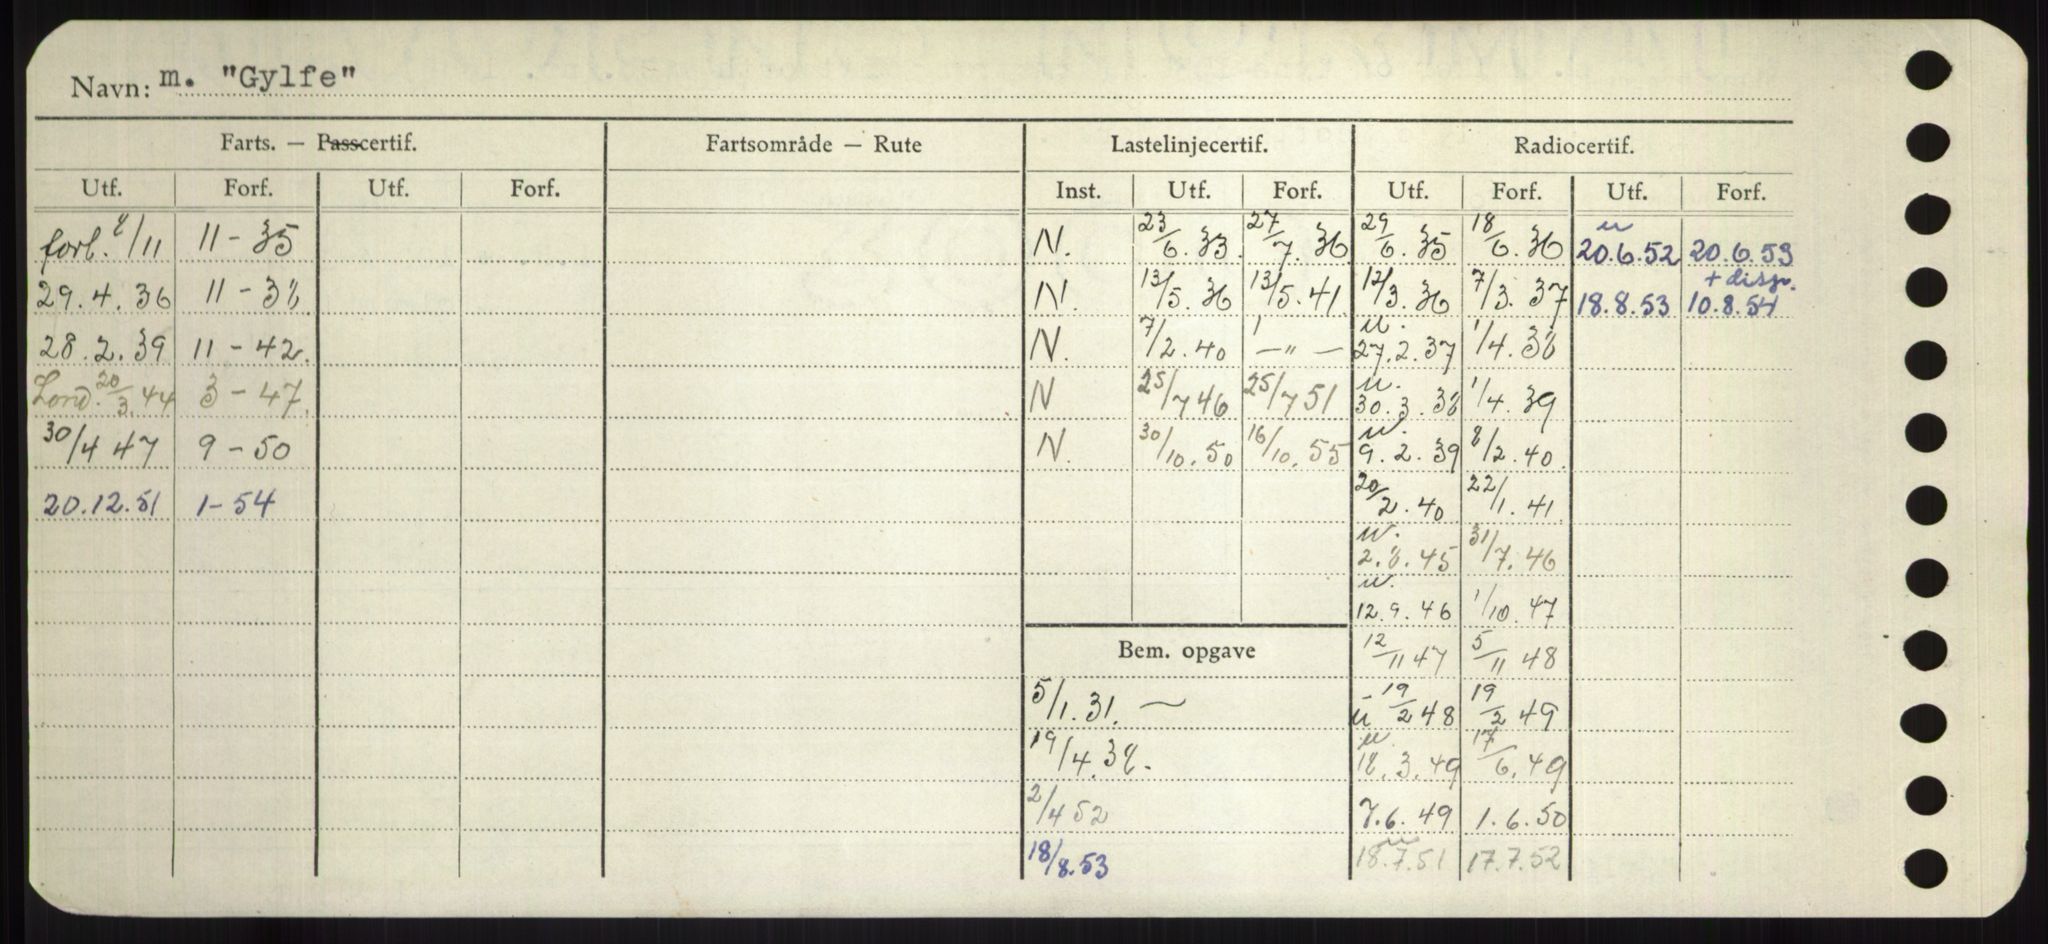 Navn: m. "Gylfe"
Farts. — Passcertif. Fartsområde — Rute Lastelinjecertif. Radiocertif.
Utf. Forf. Utf. Forf. Inst. Utf. Forf. Utf. Forf. Utf. Forf.
forl. 8/11 11-35 N. 23/6. 33. 27/7. 36 29/6. 35 18/6. 36 u 20.6.52 20.6.53
29.4.36 11-38 N. 13/5. 36 13/5. 41. 12/3. 36 7/3. 37 18.8.53 + disp. 10.8.54
28.2.39 11-42. N. 7/2. 40 —"— u. 27.2.37 1/4. 38
Lond. 20/3. 44 3-47. N 25/7 46 25/7 51 u. 30.3.38 1/4. 39
30/4 47 9-50 N. 30/10. 50 16/10. 55 u. 9.2.39 8/2. 40.
20.12.51 1-54 20/2. 40 22/1. 41.
u. 2.8.45 31/7. 46
u. 12.9.46 1/10. 47
Bem. opgave 12/11 47 5/11 48
5/1. 31. ~ u 19/2 48 19/2 49
19/4. 38. u. 18.3.49 17/6. 49
2/4 52 7.6.49 1.6.50
18/8. 53 u 18.7.51 17.7.52